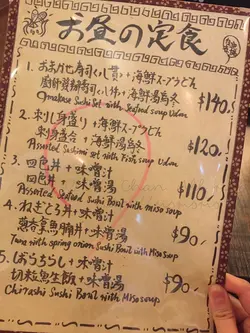 お昼の定食
1. おまかせ寿司 + 海鮮スープうどん
廚師發辦壽司 + 海鮮湯烏冬 $140.
Omakase Sushi Set with Seafood Soup Udon
2. 刺し身盛り + 海鮮スープうどん
刺身盛合 + 海鮮湯烏冬 $120.
Assorted Sashimi Set with Fish Soup Udon
3. 四色丼 + 味噌汁
四色丼 + 味噌湯 $110.
Assorted Seafood Sushi Bowl with miso soup
4. ねぎとろ丼 + 味噌汁
葱吞拿魚腩丼 + 味噌湯 $90.
Tuna with spring onion Sushi Bowl with MISO soup
5. ばらちらし + 味噌汁
切粒魚生飯 + 味噌湯 $90.
Chirashi Sushi Bowl with MISO soup